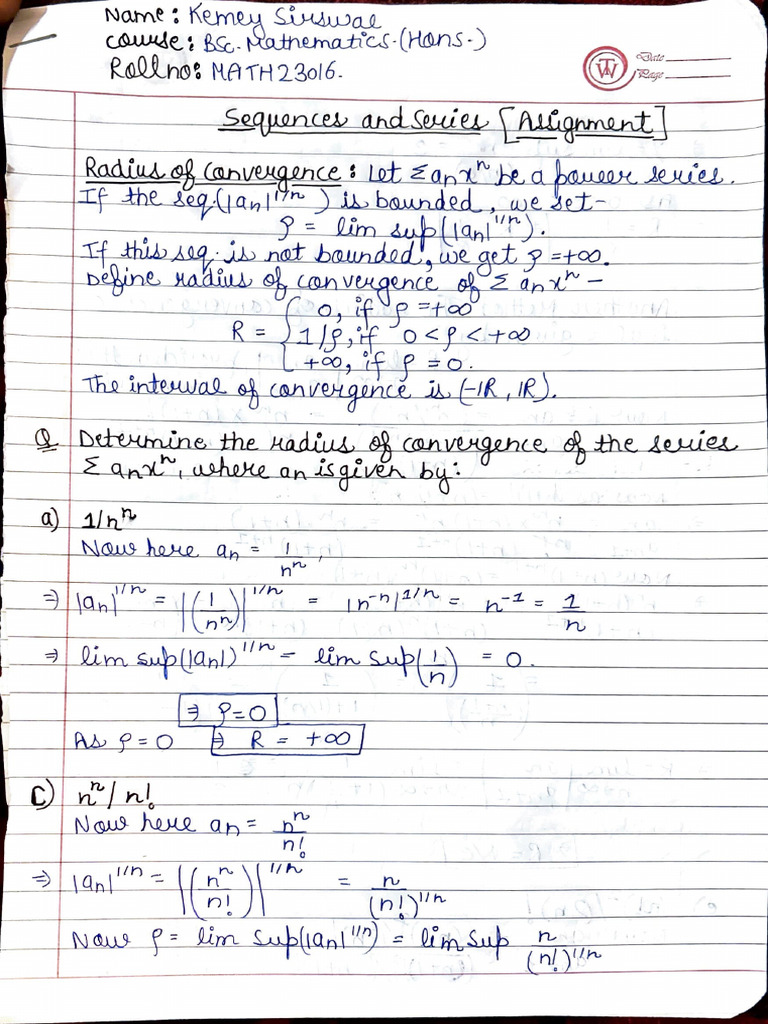 Name: Kemey Sirswal
Course: BSc. Mathematics-(Hons-)
Roll no: MATH23016.
TW
Date
Page
Sequences and Series [Assignment]
Radius of convergence: Let Σ aₙxⁿ be a power series.
If the seq. (|aₙ|^1/n) is bounded, we set-
ρ = lim sup(|aₙ|^1/n).
If this seq. is not bounded, we get ρ = +∞.
Define radius of convergence of Σ aₙxⁿ –
R = { 0, if ρ = +∞
1/ρ, if 0 < ρ < +∞
+∞, if ρ = 0.
The interval of convergence is (-R, R).
Q Determine the radius of convergence of the series
Σ aₙxⁿ, where an is given by:
a) 1/nⁿ
Now here aₙ = 1/nⁿ,
⇒ |aₙ|^1/n = |(1/nⁿ)|^1/n = |n^-n|^1/n = n^-1 = 1/n
⇒ lim sup(|aₙ|)^1/n = lim sup(1/n) = 0.
⇒ ρ=0
As ρ=0 ⇒ R = +∞
C) nⁿ/n!
Now here aₙ = nⁿ/n!
⇒ |aₙ|^1/n = |(nⁿ/n!)|^1/n = n/(n!)^1/n
Now ρ = lim sup(|aₙ|^1/n) = lim sup n/(n!)^1/n